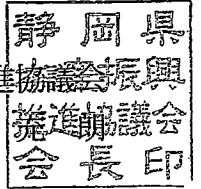 静岡県
進協議会振興
進協議会
会長印